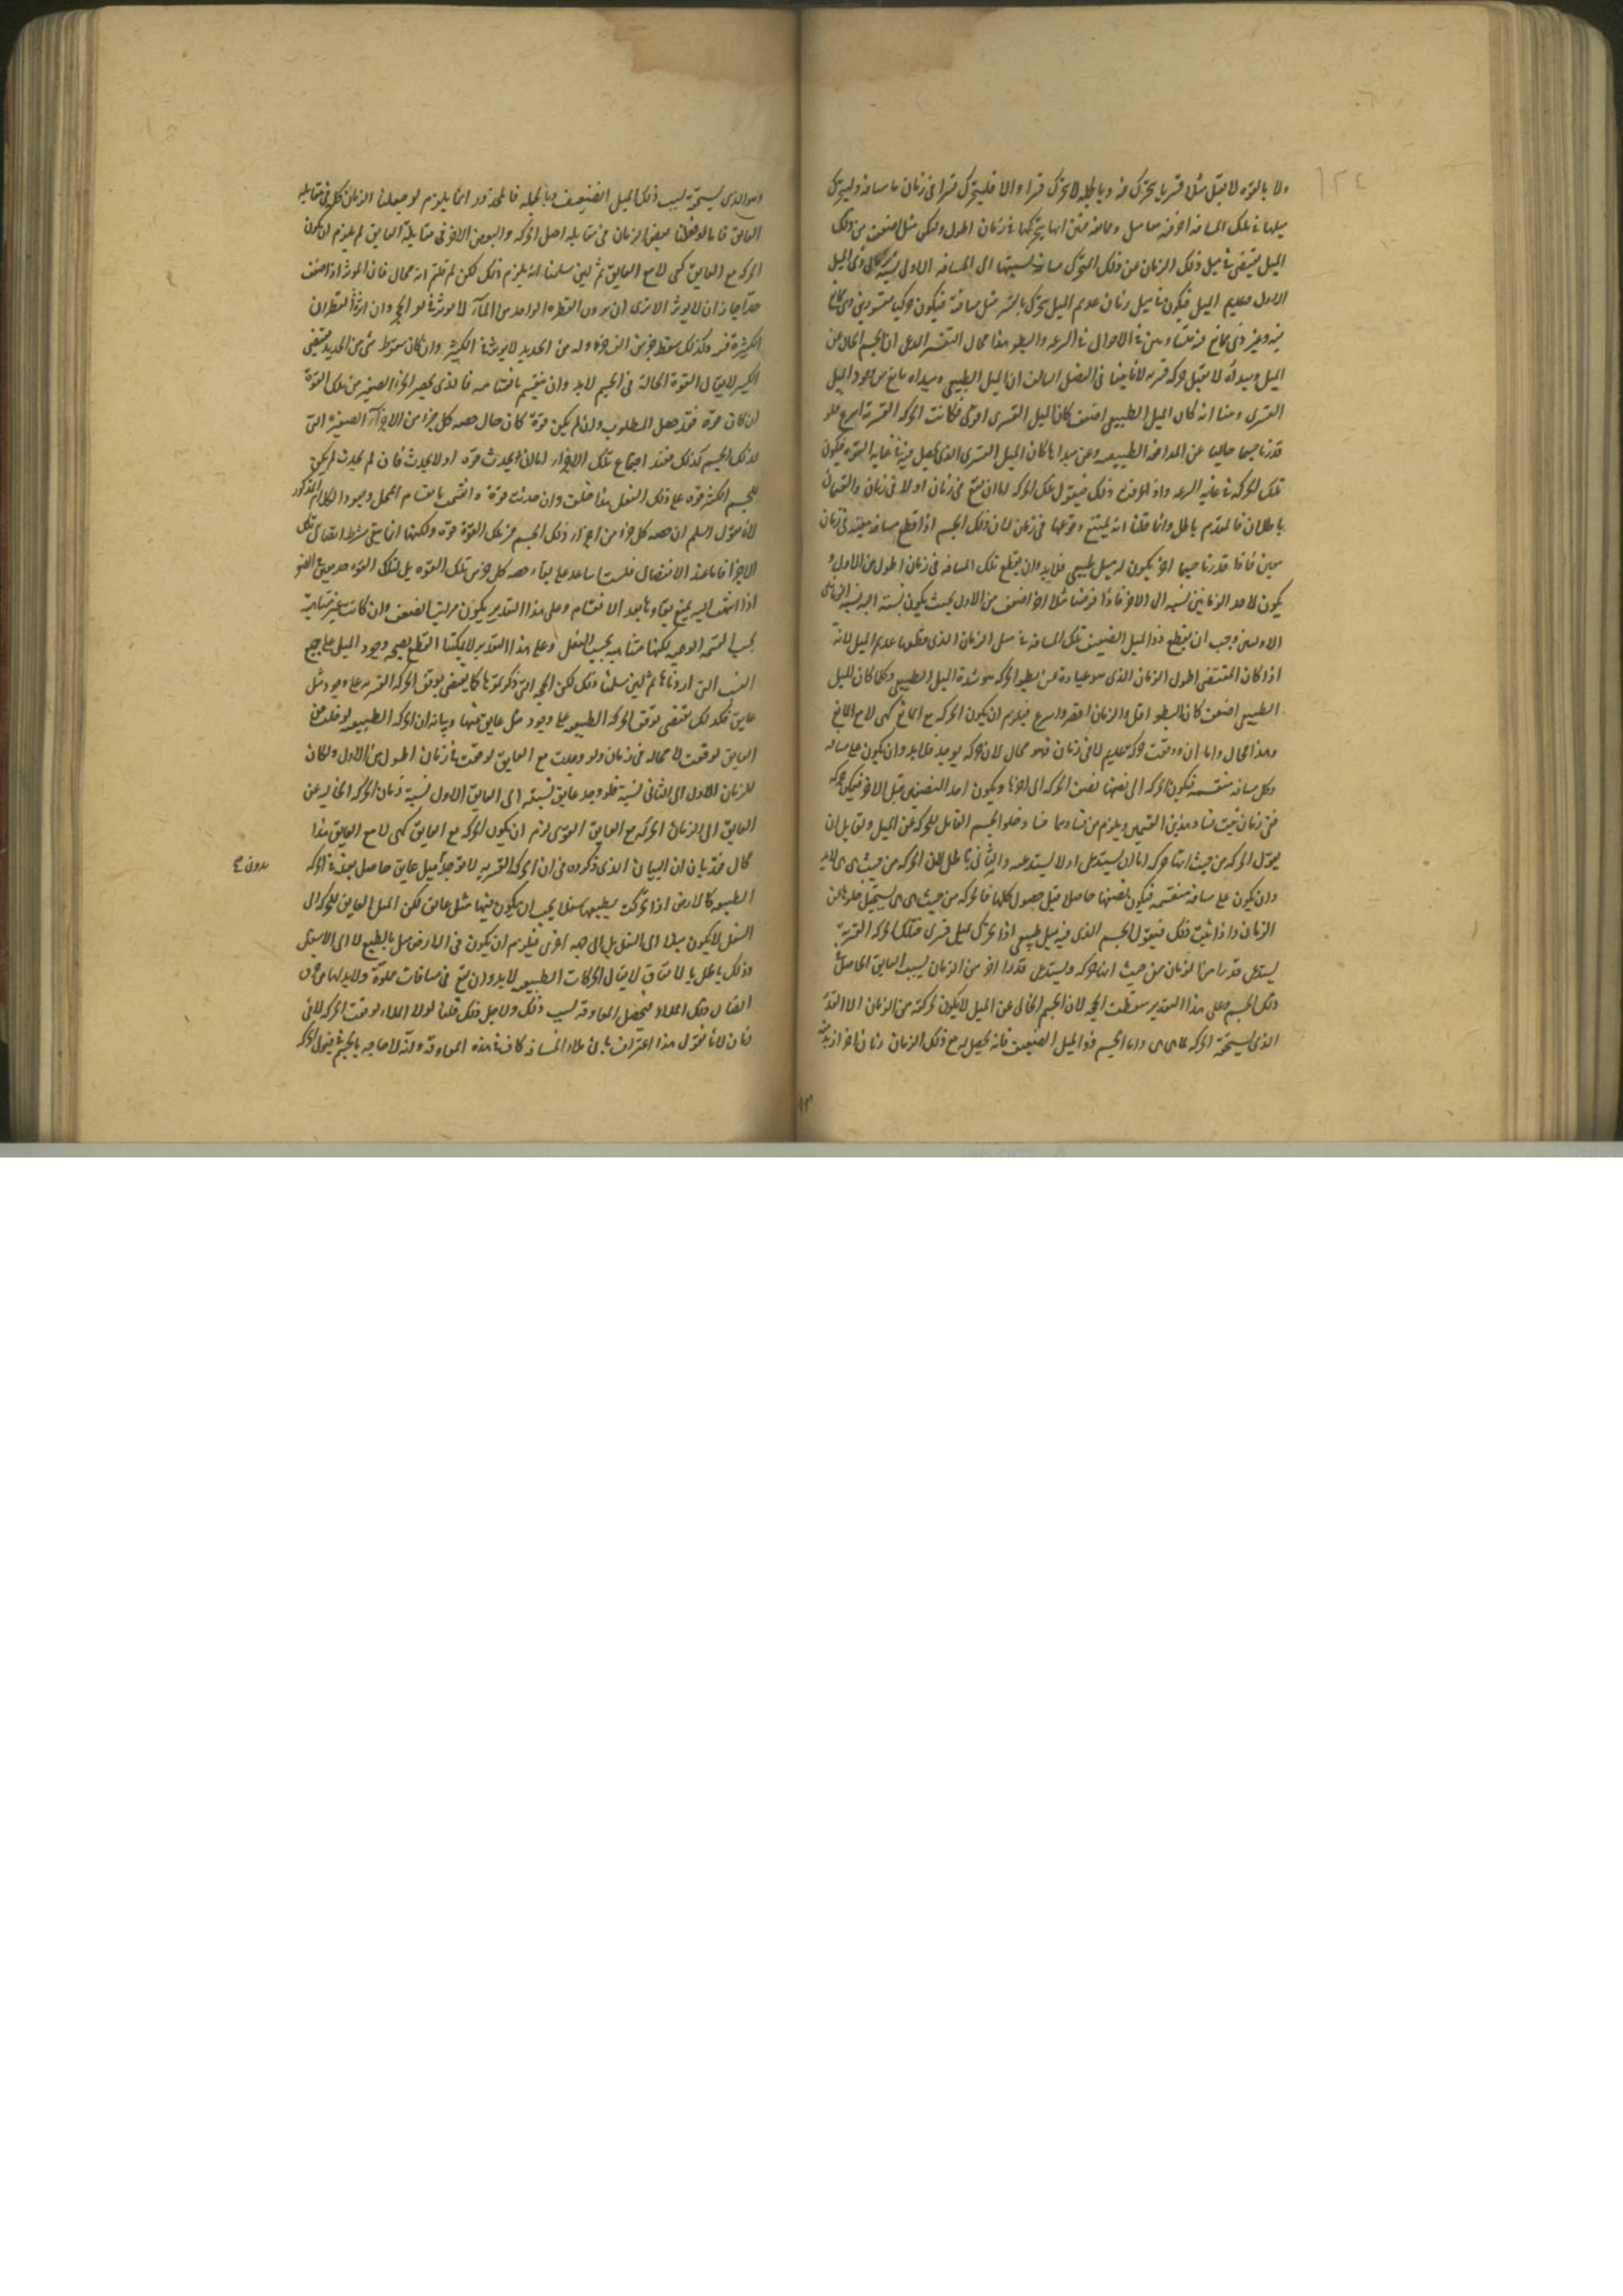 ١٢٤
ولا بالقوة لا يقبل ميلا قسريا يتحرك به وبالجملة لا يتحرك قسرا والا فليتحرك قسرا في زمان ما مسافة وليتحرك
مثلها في تلك المسافة اخر فيه ميل ومعاوقة فبين انه يتحركها في زمان اطول وليكن ميل اضعف من ذلك
الميل يقتضي في مثل ذلك الزمان عن ذلك المحرك مسافة نسبتها الى المسافة الاولى نسبة زماني ذي الميل
الاول وعديم الميل فيكون في مثل زمان عديم الميل يتحرك بالقسر مثل مسافته فيكون حركتا مقسورين ذي ممانع
فيه وغير ذي ممانع فيه متساويتين في الاحوال في السرعة والبطو هذا محال التفسير الدعوى ان الجسم الخالي عن
الميل ومبدأه لا يقبل حركة قسرية لانا بينا في الفصل السالف ان الميل الطبيعي ومبداه مانع من وجود الميل
القسري وبينا انه كان الميل الطبيعي اضعف كان الميل القسري اقوى فكانت الحركة القسرية اسرع فلو
قدرنا جسما خاليا عن المدافعة الطبيعية وعن مبدأها كان الميل القسري الذي يحصل فيه في غاية القوة فيكون
تلك الحركة في غاية السرعة واذا عرفت ذلك فنقول تلك الحركة اما ان تقع في زمان او لا في زمان والقسمان
باطلان فالمقدم باطل وانما قلنا انه يمتنع وقوعها في زمان لان ذلك الجسم اذا قطع مسافة معينة في زمان
معين فاذا قدرنا جسما اخر يكون له ميل طبيعي فلا بد وان يقطع تلك المسافة في زمان اطول من الاول و
يكون لاحد الزمانين نسبة الى الاخر فاذا فرضنا ميلا اخر اضعف من الاول بحيث يكون نسبته اليه نسبة الزمانين
الاولين وجب ان يقطع ذو الميل الضعيف تلك المسافة في مثل الزمان الذي قطعها عديم الميل لانه
اذا كان المقتضى لطول الزمان الذي هو عبارة عن بطو الحركة هو شدة الميل الطبيعي وكلما كان الميل
الطبيعي اضعف كان البطو اقل والزمان اقصر واسرع فيلزم ان يكون الحركة مع المانع كهي لا مع المانع
وهذا محال واما ان وقعت حركة عديم لا في زمان فهو محال لان حركة يوجد فلا بد وان يكون على مسافة
وكل مسافة منقسمة فيكون الحركة الى نصفها نصف الحركة الى اخرها ويكون احد النصفين قبل الاخر فيكون حركة
في زمان فثبت فساد هذين القسمين ويلزم من فسادهما فساد خلو الجسم القابل للحركة عن الميل ولقايل ان
يقول الحركة من حيث انها حركة اما ان يستدعى او لا يستدعيه والثاني باطل لان الحركة من حيث هي هي لا بد
وان يكون على مسافة منقسمة فيكون نصفها حاصلا قبل حصول كلها فالحركة من حيث هي هي يستحيل خلوها عن
الزمان واذا ثبت ذلك فنقول الجسم الذي فيه ميل طبيعي اذا تحرك بميل قسري فتلك الحركة القسرية
يستدعى قدرا من الزمان من حيث انها حركة ويستدعى قدرا اخر من الزمان بسبب العايق الحاصل في
ذلك الجسم وعلى هذا التقدير سقطت الحجة لان الجسم الخالي عن الميل لا يكون لحركته من الزمان الا القدر
الذي يستحقه الحركة لما هي هي واما الجسم ذو الميل الضعيف فانه يحصل له مع ذلك الزمان زمان اخر ازيد منه
وهو الذي يستحقه بسبب ذلك الميل الضعيف وبالجملة فالمحذور انما يلزم لو جعلنا الزمان كله في مقابلة
العايق فاما لو جعلنا بعض الزمان في مقابلة اصل الحركة والبعض الاخر في مقابلة العايق لم يلزم ان يكون
الحركة مع العايق كهي لا مع العايق ثم لئن سلمنا انه يلزم ذلك لكن لم قلتم انه محال فان المؤثر اذا ضعف
جدا جاز ان لا يؤثر الا ترى ان نزول القطرة الواحدة من الماء لا يؤثر في نقر الحجر وان اثرت القطرات
الكثيرة فيه وكذلك سقط جزء من الف جزء ولد من الحديد لا يؤثر في الكسر وان كان سقوط شيء من الحديد يقتضي
الكسر لا يقال القوة الحالة في الجسم لا بد وان ينقسم بانقسامه فالذي يحصر الجزء الصغير من تلك القوة
ان كان قوة فقد حصل المطلوب وان لم يكن قوة كان حال حصة كل جزء من الاجزاء الصغيرة التي
لذلك الجسم كذلك فعند اجتماع تلك الاجزاء اما ان يحدث قوة او لا يحدث فان لم يحدث لم يكن
للجسم الكبير قوة على ذلك الفعل هذا خلف وان حدثت قوة وانقسمت بانقسام المحل وجب الكلام المذكور
لانا نقول نسلم ان حصة كل جزء من اجزاء ذلك الجسم من تلك القوة قوة ولكنها انما يبقى بشرط اتصال تلك
الاجزاء فاما عند الانفصال فلست اساعد على بقاء حصة كل جزء من تلك القوة بل لتلك القوة حد معين في الصغر
اذا انتهت اليه يمتنع بقاؤها بعد الانقسام وعلى هذا التقدير يكون مراتب الضعف وان كانت غير متناهية
بحسب القسمة الوهمية لكنها متناهية بحسب الفعل وعلى هذا التقدير لا يمكننا القطع بصحة وجود الميل على جميع
النسب التي اردناها ثم لئن سلمنا ذلك لكن الحجة التي ذكرتموها كما يقتضي توقف الحركة القسرية على وجود ميل
عايق فكذلك يقتضي توقف الحركة الطبيعية على وجود ميل عايق عنها وبيانه ان الحركة الطبيعية لو خلت عن
العايق لوقعت لا محالة في زمان ولو وجدت مع العايق لوقعت في زمان اطول من الاول ولكان
للزمان الاول الى الثاني نسبة فلو وجد عايق نسبته الى العايق الاول نسبة زمان الحركة الخالية عن
العايق الى زمان الحركة مع العايق القوى لزم ان يكون الحركة مع العايق كهي لا مع العايق هذا
محال فقد بان ان البيان الذي ذكروه في ان الحركة القسرية لا توجد الا بميل عايق حاصل بعينه في الحركة
بدون
الطبيعية كالارض اذا تحركت بطبعها سفلا يجب ان يكون فيها ميل عايق لكن الميل العايق للحركة الى
السفل لا يكون ميلا الى السفل بل الى جهة اخرى فيلزم ان يكون في الارض ميل بالطبع لا الى الاسفل
وذلك باطل بالاتفاق لا يقال الحركات الطبيعية لا بد وان تقع في مسافات مملوة ولا بد لها من
اتصال ذلك الملاء فيحصل المعاوقة بسبب ذلك ولاجل ذلك قلنا لولا الملاء لوقعت الحركة لا في
زمان لانا نقول هذا اعتراف بان ملاء المسافة كاف في هذه المعاوقة وانه لا حاجة بالجسم في قبول الحركة